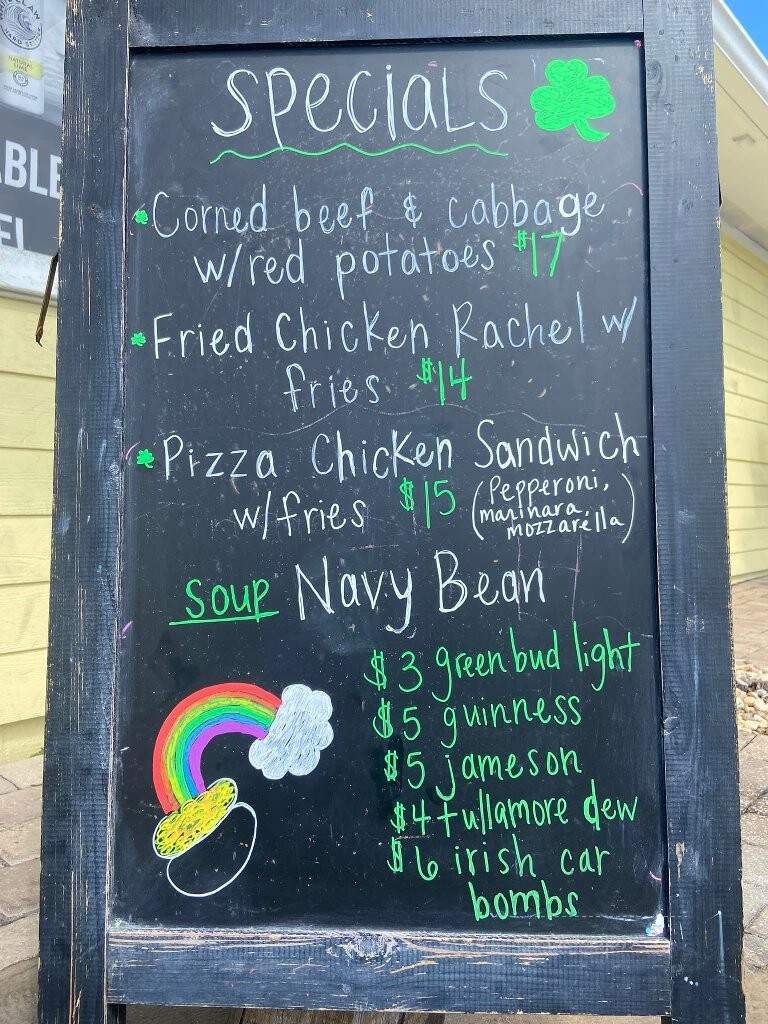 CLAW
HARD SE
NATURAL
LIME
ABLE
SPECIALS
Corned beef & cabbage
w/red potatoes $17
Fried Chicken Rachel w/
fries $14
Pizza Chicken Sandwich
w/fries $15 (Pepperoni,
marinara,
mozzarella)
soup Navy Bean
$3 green bud light
$5 guinness
$5 jameson
$4 tullamore dew
$6 irish car
bombs